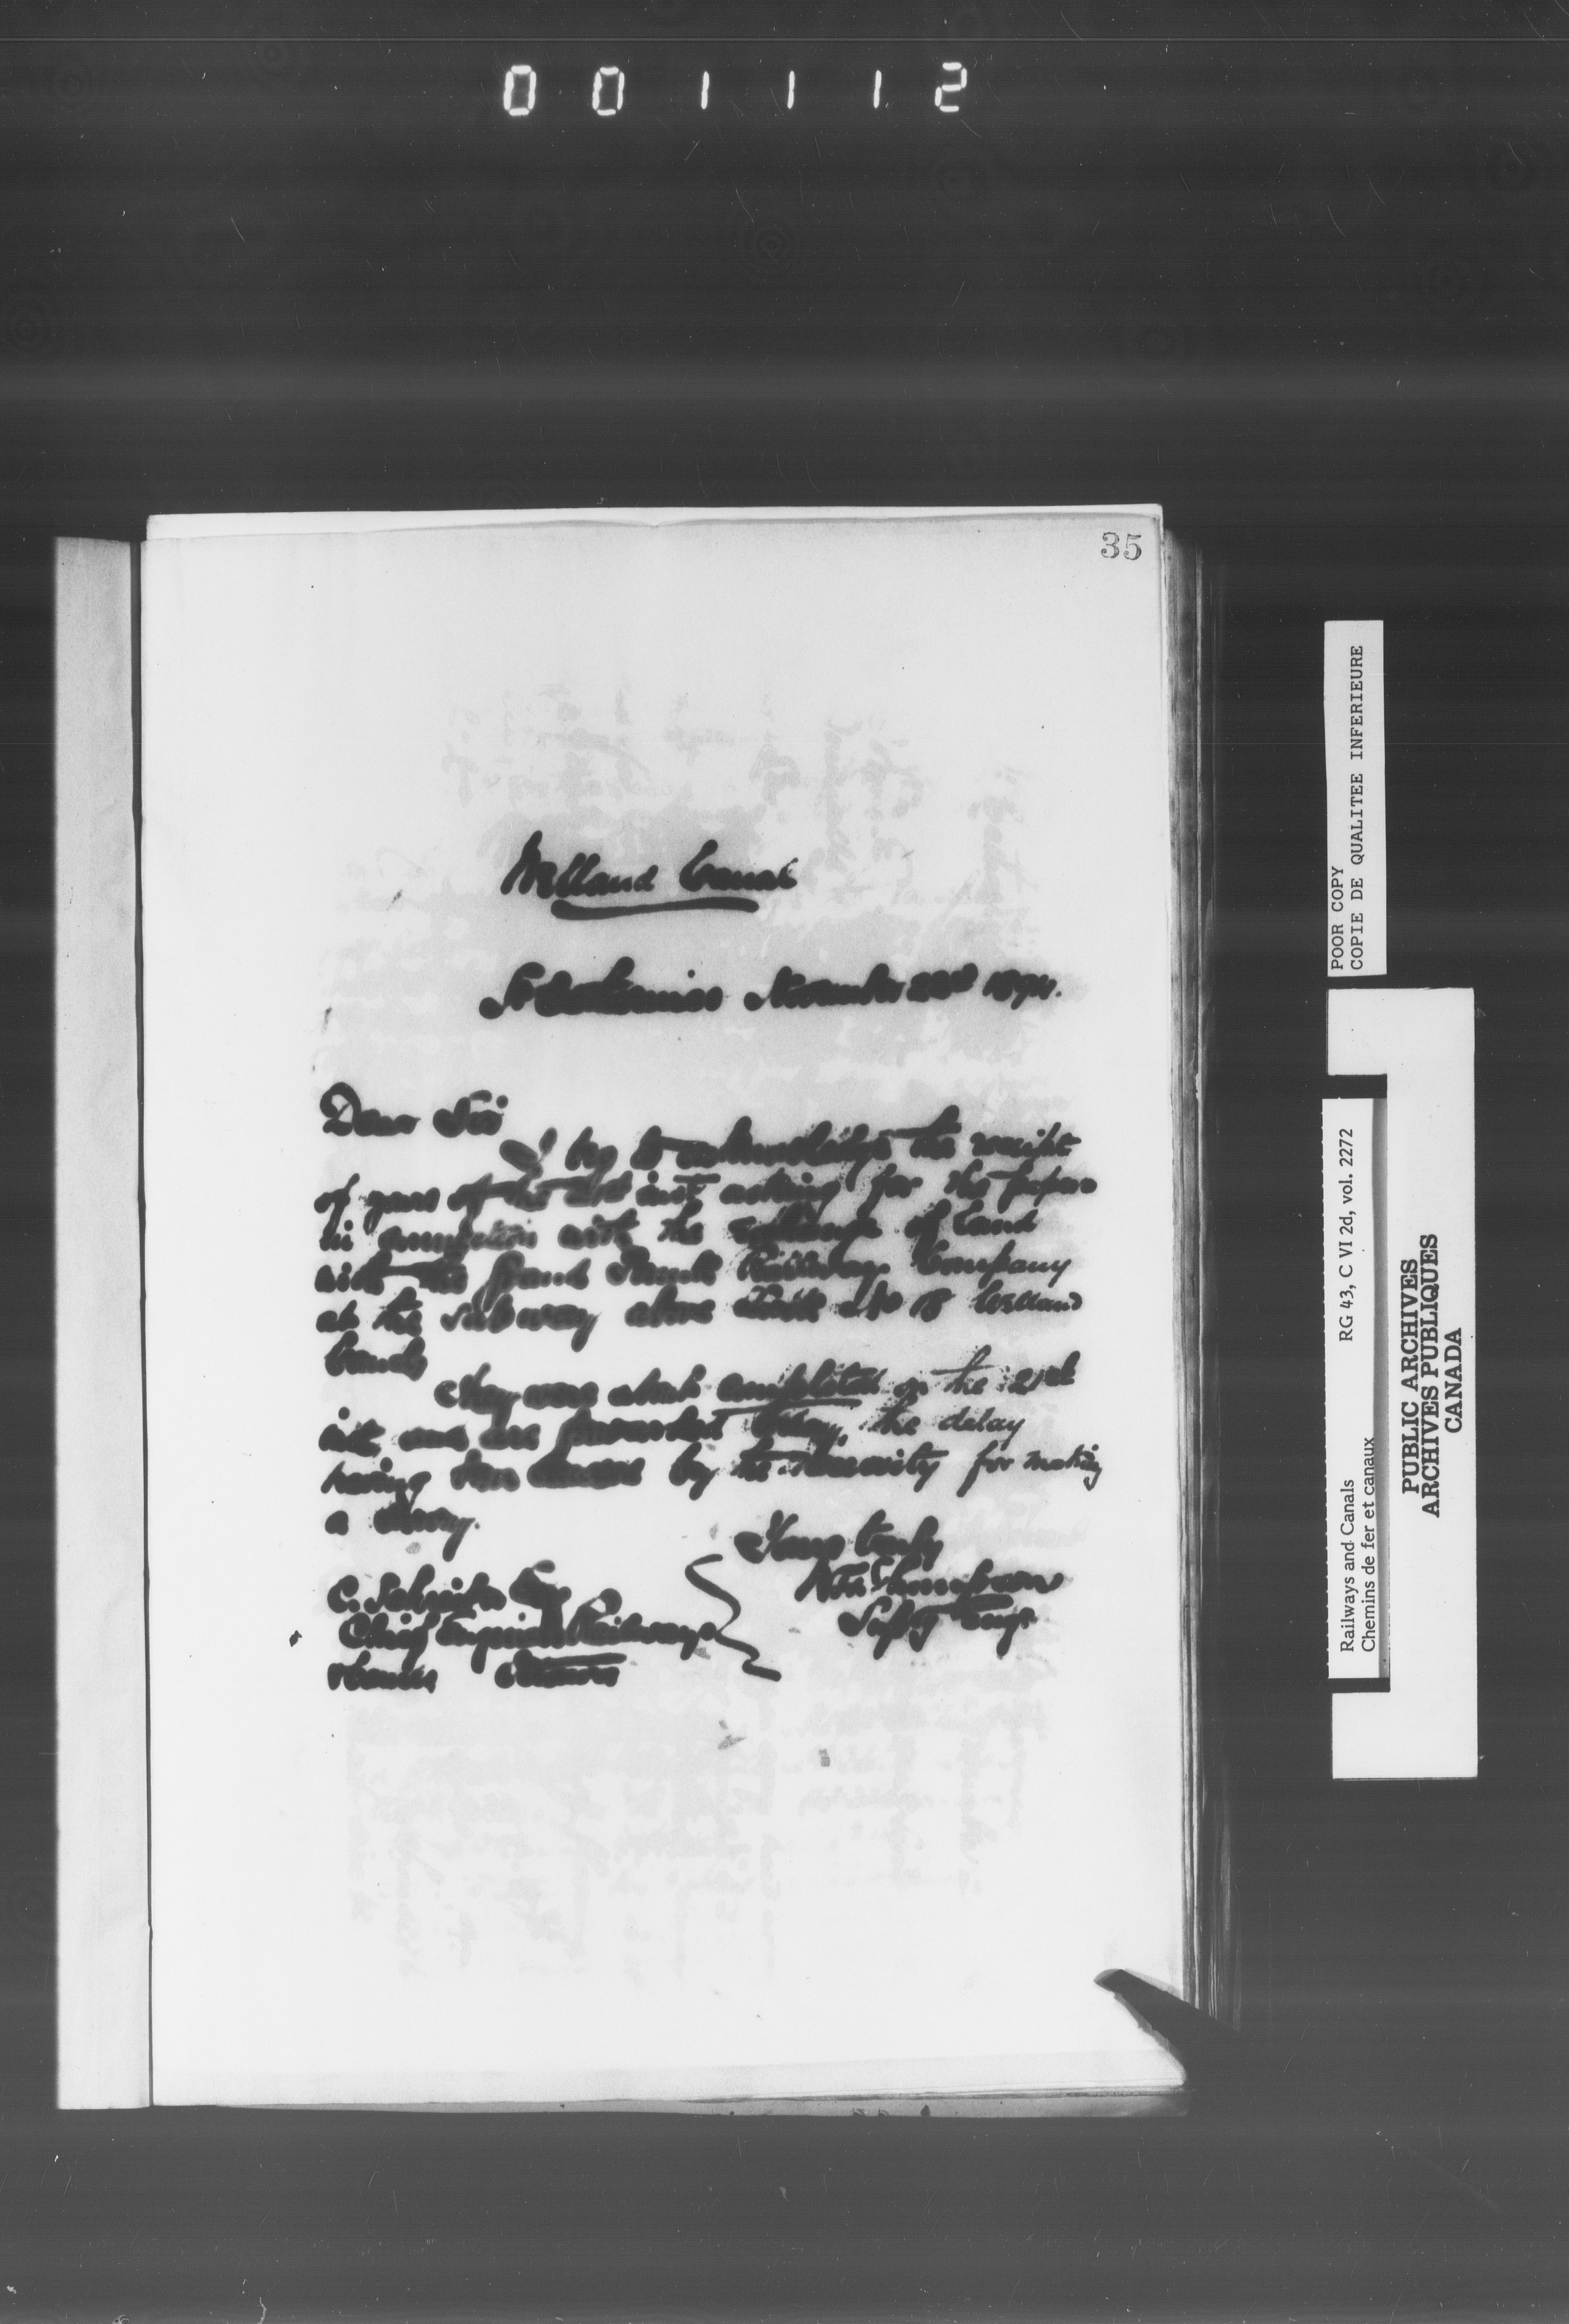 001112
35
Welland Canal
St Catharines November 22nd 1894.
Dear Sir
I beg to acknowledge the receipt
of yours of the 21st inst asking for the papers
in connection with the exchange of land
with the Grand Trunk Railway Company
at the subway above Lock No 18 Welland
Canal
They were completed on the 21st
inst and are forwarded today, the delay
having been caused by the necessity for making
a survey.
Yours truly
Wm Thompson
Supt Engr
C. Schreiber Esq
Chief Engineer Railways
& Canals Ottawa
POOR COPY
COPIE DE QUALITEE INFERIEURE
RG 43, C VI 2d, vol. 2272
Railways and Canals
Chemins de fer et canaux
PUBLIC ARCHIVES
ARCHIVES PUBLIQUES
CANADA